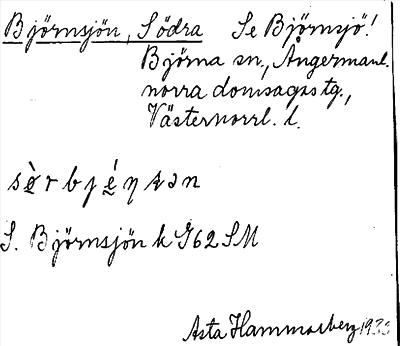 Björnsjön, Södra Se Björnsjö!
Björna sn., Ångermanl.
norra domsagas tg.,
Västernorrl. l.
S. Björnsjön k G62 SM
Asta Hammarberg